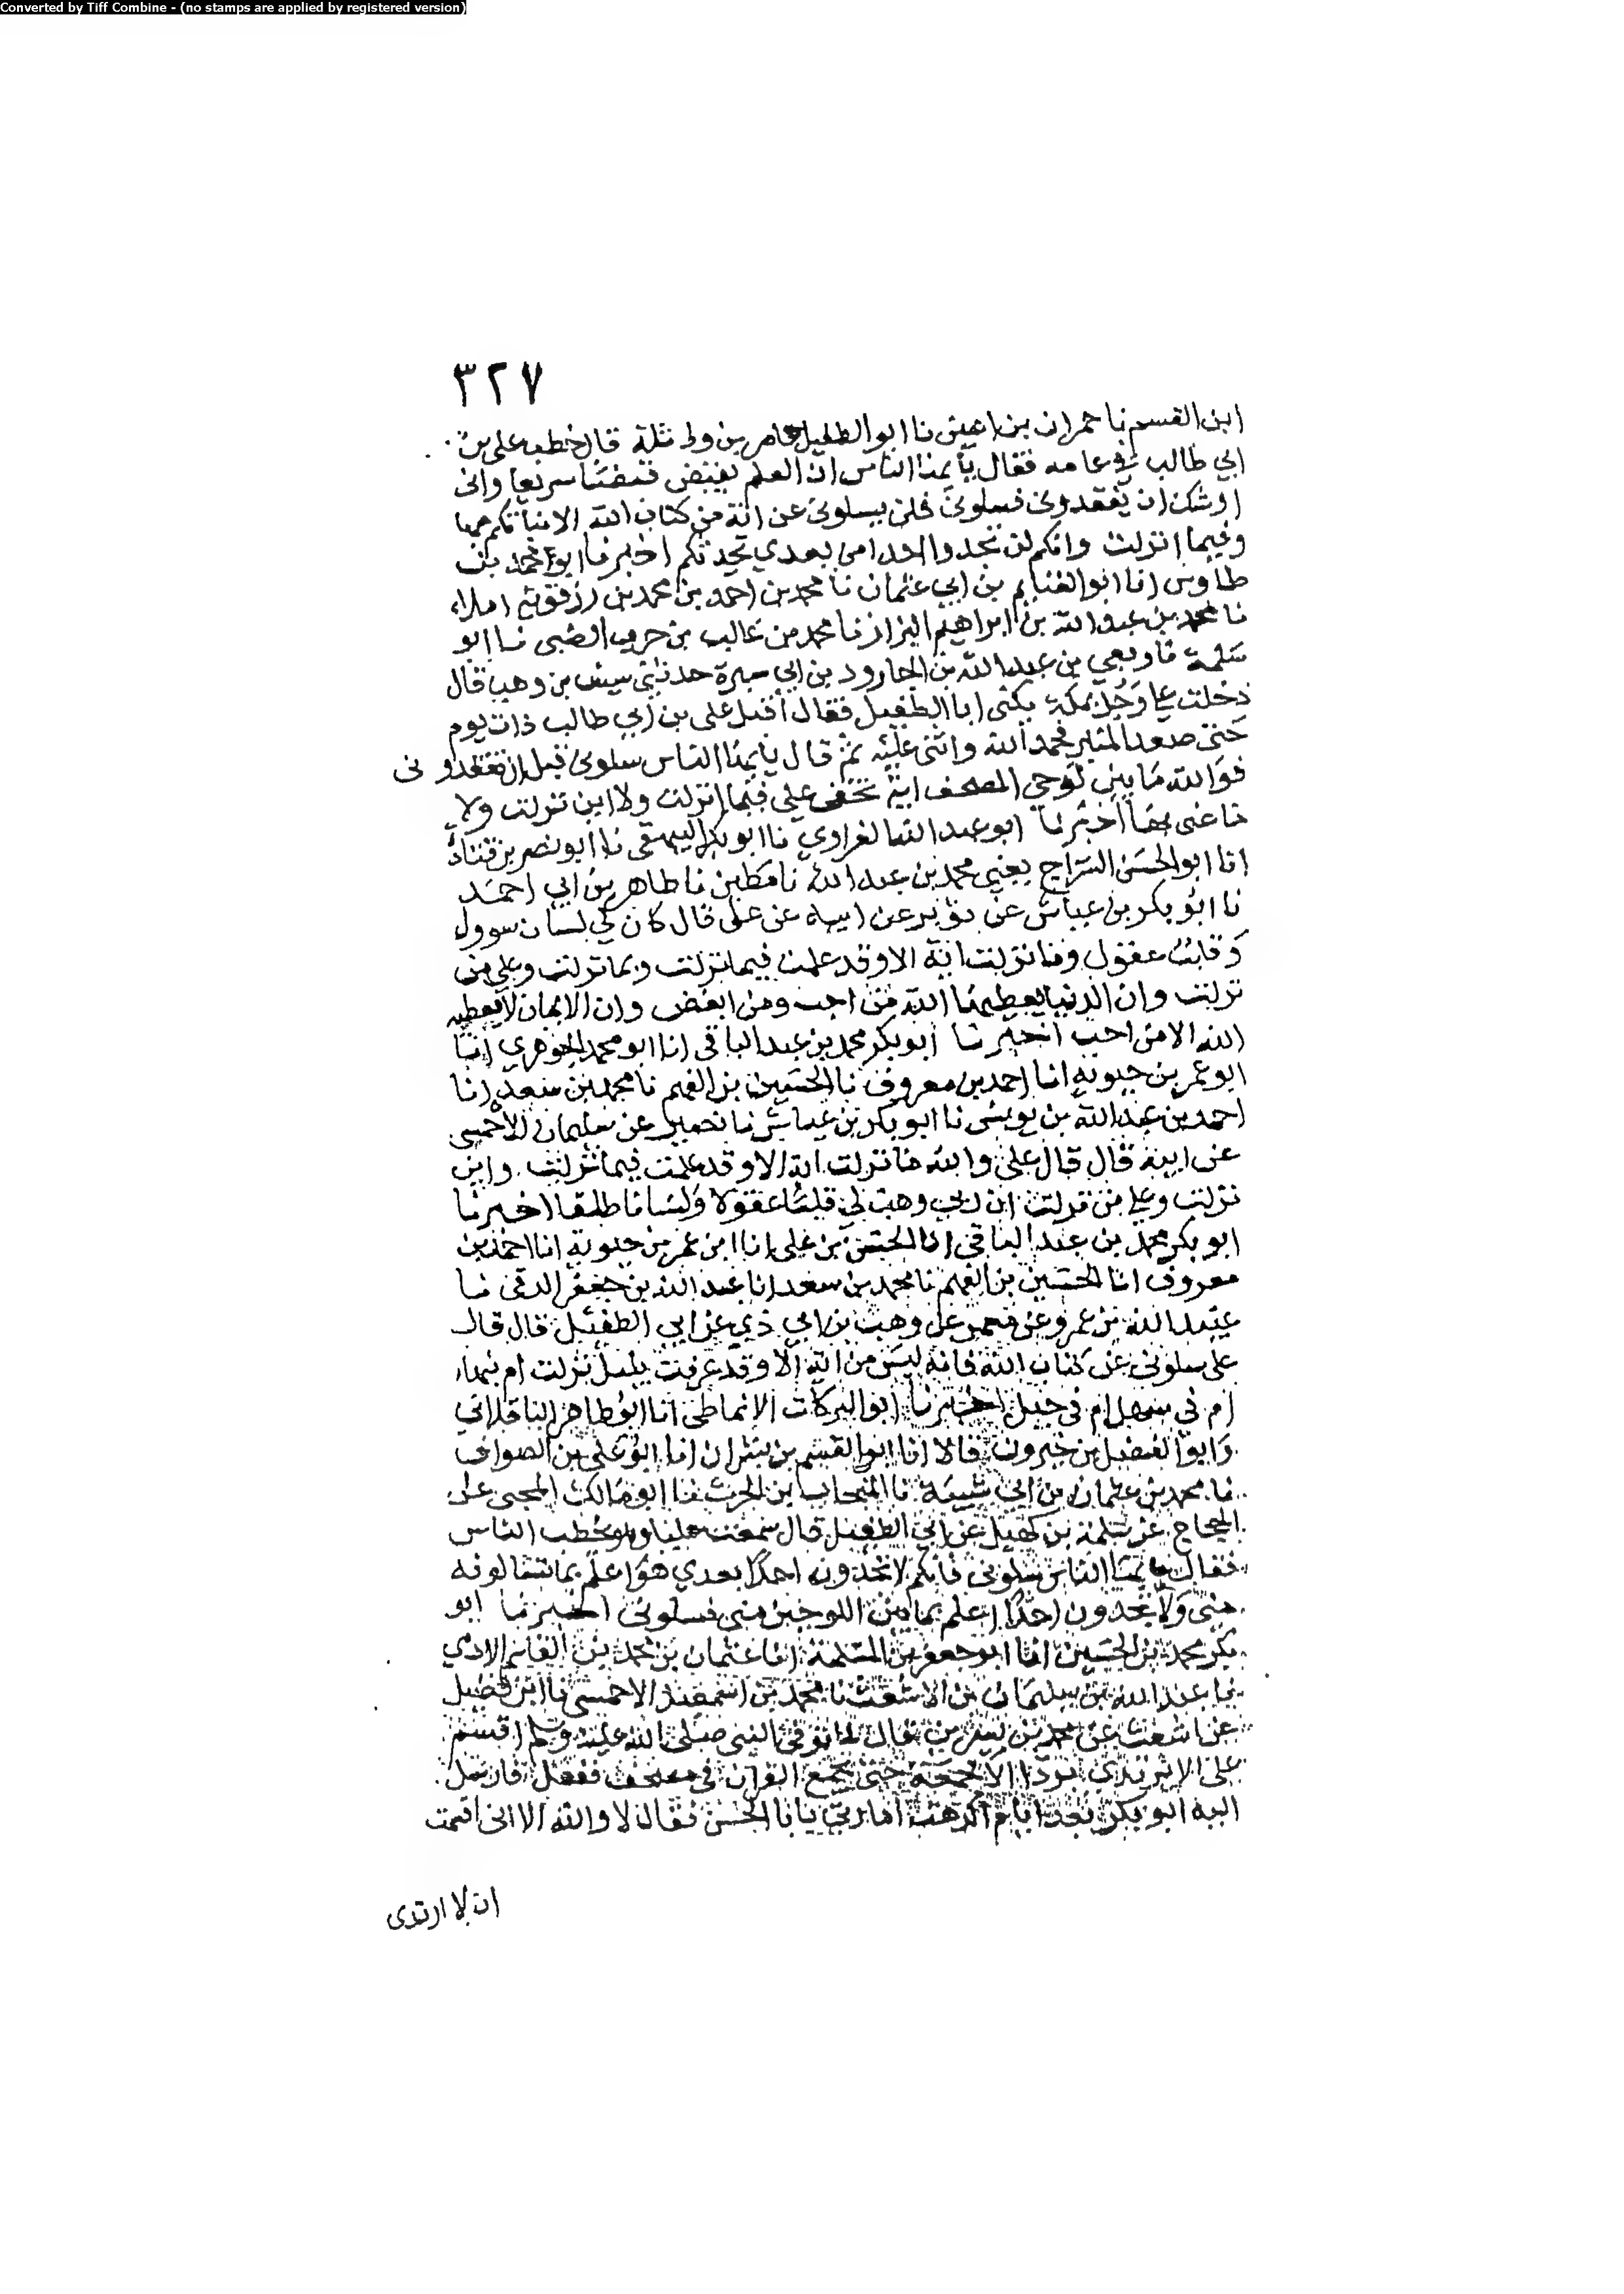 Converted by Tiff Combine - (no stamps are applied by registered version)
٣٢٧
ابن القسم نا حمران بن اعين نا ابو الطفيل عامر بن واثلة قال خطب علي بن
ابي طالب في عامه فقال يأيها الناس ان العلم يقبض قبضا سريعا واني
اوشك ان تفقدوني فسلوني فلن تسلوني عن اية من كتاب الله الا نبأتكم بها
وفيما انزلت وانكم لن تجدوا احدا من بعدي يحدثكم اخبرنا ابو محمد بن
طاوس انا ابو الغنايم بن ابي عثمان نا محمد بن احمد بن محمد بن رزقويه املاء
نا محمد بن عبد الله بن ابراهيم البزاز نا محمد بن غالب بن حرب الضبي نا ابو
سلمة نا ربعي بن عبد الله بن الجارود بن ابي سبرة حدثني سيف بن وهب قال
دخلت على رجل بمكة يكنى ابا الطفيل فقال اقبل علي بن ابي طالب ذات يوم
حتى صعد المنبر فحمد الله واثنى عليه ثم قال يأيها الناس سلوني قبل ان تفقدوني
فوالله ما بين لوحي المصحف اية تخفى علي فيما انزلت ولا اين نزلت ولا
ما عنى بها اخبرنا ابو عبد الله الفراوي نا ابو بكر البيهقي نا ابو نصر بن قتادة
انا ابو الحسن السراج يعني محمد بن عبد الله نا مطين نا طاهر بن ابي احمد
نا ابو بكر بن عياش عن ثوير عن ابيه عن علي قال كان لي لسان سوول
وقلب عقول وما نزلت اية الا وقد علمت فيما نزلت وبما نزلت وعلى من
نزلت وان الدنيا يعطيها الله من احب ومن ابغض وان الايمان لا يعطيه
الله الا من احب اخبرنا ابو بكر محمد بن عبد الباقي انا ابو محمد الجوهري انبا
ابو عمر بن حيويه انا احمد بن معروف نا الحسين بن الفهم نا محمد بن سعد انا
احمد بن عبد الله بن يونس نا ابو بكر بن عياش نا نصير عن سليمان الاحمسي
عن ابيه قال قال علي والله ما نزلت اية الا وقد علمت فيما نزلت واين
نزلت وعلى من نزلت ان ربي وهب لي قلبا عقولا ولسانا طلقا اخبرنا
ابو بكر محمد بن عبد الباقي انا الحسن بن علي انا ابن عمر بن حيويه انا احمد بن
معروف انا الحسين بن الفهم نا محمد بن سعد انا عبد الله بن جعفر الرقي نا
عبيد الله بن عمرو عن معمر عن وهب بن ابي ذبي عن ابي الطفيل قال قال
علي سلوني عن كتاب الله فانه ليس من اية الا وقد عرفت بليل نزلت ام بنهار
ام في سهل ام في جبل اخبرنا ابو البركات الانماطي انا ابو طاهر الباقلاني
وابو الفضل بن خيرون قالا انا ابو القسم بن بشران انا ابو علي بن الصواف
نا محمد بن عثمان بن ابي شيبة نا المنجاب بن الحرث نا ابو مالك الجنبي عن
الحجاج عن سلمة بن كهيل عن ابي الطفيل قال سمعت عليا وهو يخطب الناس
فقال يايها الناس سلوني فانكم لا تجدون احدا بعدي هو اعلم بما تسالونه
مني ولا تجدون احدا اعلم بما بين اللوحين مني فسلوني اخبرنا ابو
بكر محمد بن الحسين انا ابو جعفر بن المسلمة انا عثمان بن محمد بن القاسم الادمي
نا عبد الله بن سليمان بن الاشعث نا محمد بن اسمعيل الاحمسي نا ابن فضيل
عن اشعث عن محمد بن سيرين قال لما توفي النبي صلى الله عليه وسلم اقسم
علي الا يرتدي برداء الا لجمعة حتى يجمع القران في مصحف ففعل فارسل
اليه ابو بكر بعد ايام اكرهت امارتي يابا الحسن فقال لا والله الا اني اقسمت
ان لا ارتدى